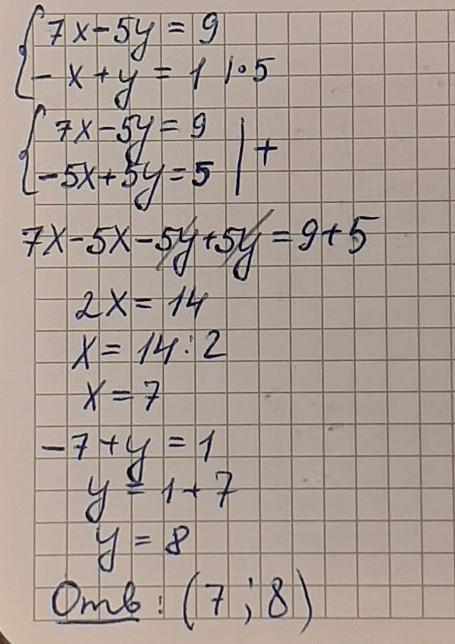 7x-5y = 9
-x+y = 1 |·5
7x-5y=9
-5x+5y=5 | +
7x-5x-5y+5y=9+5
2x = 14
x = 14:2
x = 7
-7+y = 1
y = 1+7
y = 8
Отв: (7;8)